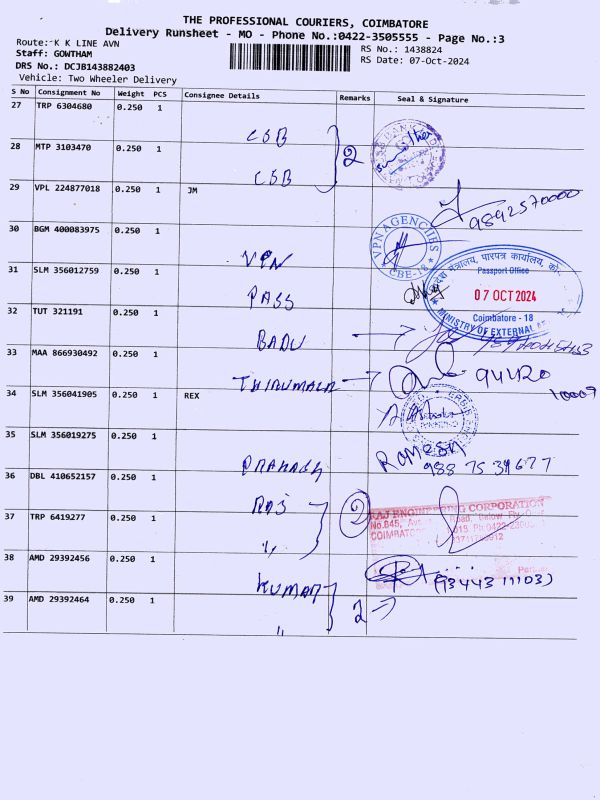 THE PROFESSIONAL COURIERS, COIMBATORE
Delivery Runsheet - MO - Phone No.:0422-3505555 - Page No.:3
Route: K K LINE AVN
RS No.: 1438824
Staff: GOWTHAM
RS Date: 07-Oct-2024
DRS No.: DCJB143882403
Vehicle: Two Wheeler Delivery
S No Consignment No Weight PCS Consignee Details Remarks Seal & Signature
27 TRP 6304680 0.250 1
CSB
28 MTP 3103470 0.250 1 2
CSB
29 VPL 224877018 0.250 1 JM
9892570000
30 BGM 400083975 0.250 1
VPN AGENCIES
CBE-18
VPN
31 SLM 356012759 0.250 1
PASS
Passport Office
07 OCT 2024
Coimbatore - 18
MINISTRY OF EXTERNAL
32 TUT 321191 0.250 1
BABU
33 MAA 866930492 0.250 1
THIRUMALA
94420
10009
34 SLM 356041905 0.250 1 REX
35 SLM 356019275 0.250 1
PRAKASH
Ramesh
36 DBL 410652157 0.250 1
RAJ
2
RAJ ENGINEERING CORPORATION
No.845,
37 TRP 6419277 0.250 1
COIMBATORE
"
38 AMD 29392456 0.250 1
KUMAR
(9344311103)
39 AMD 29392464 0.250 1
2
"